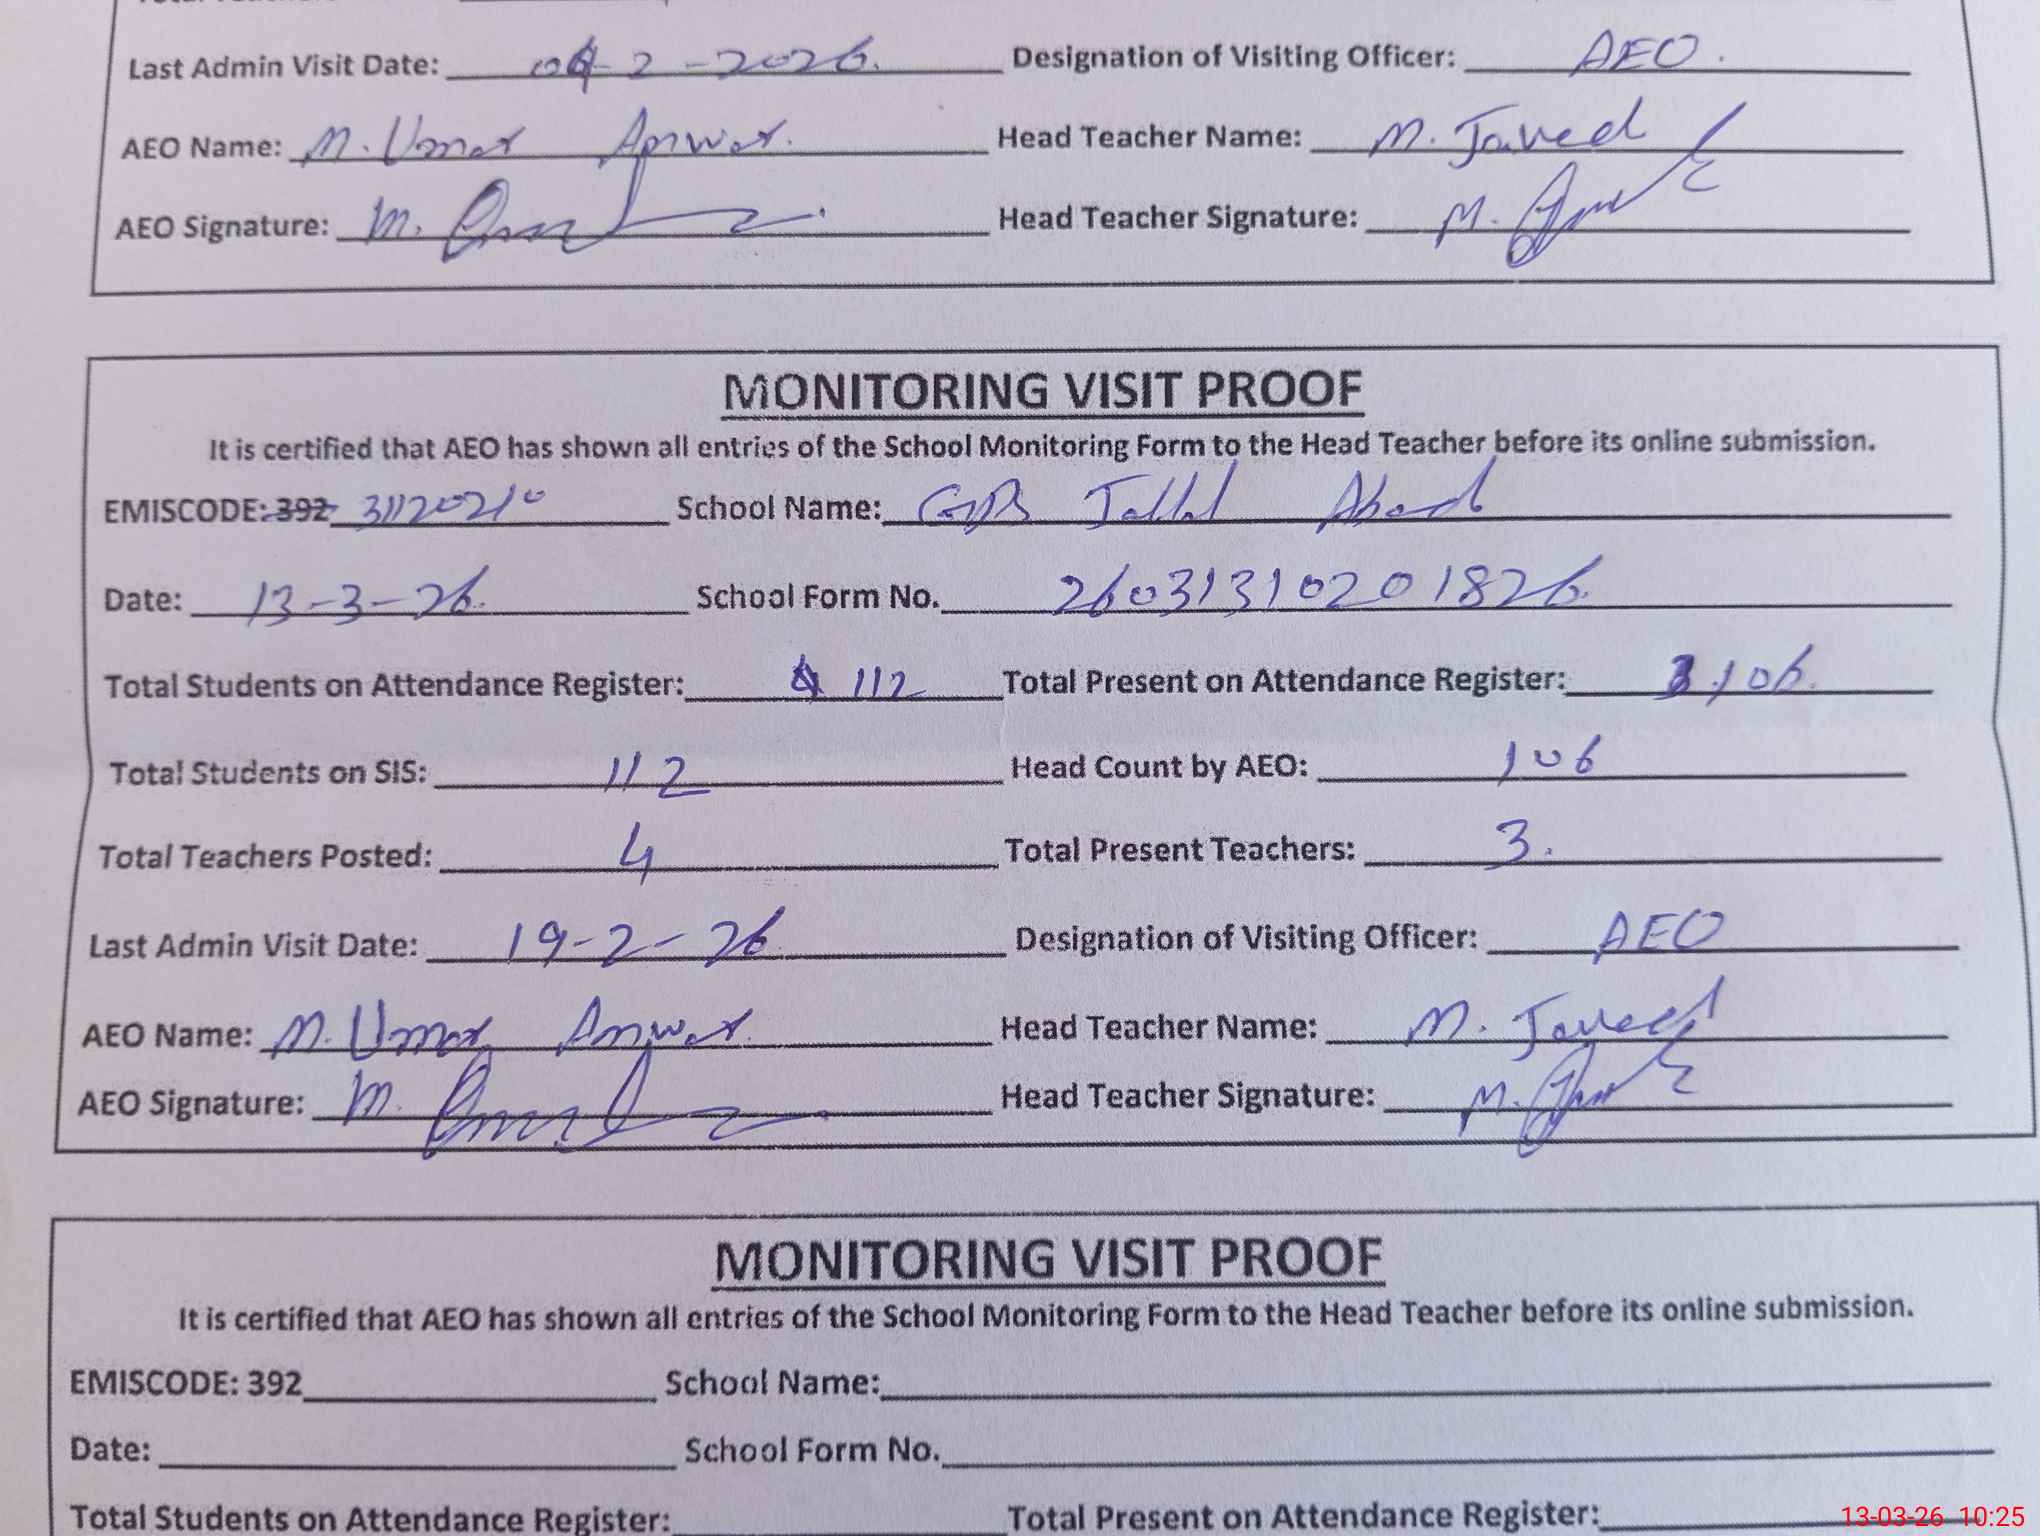 Last Admin Visit Date: 04-2-2026. Designation of Visiting Officer: AEO.
AEO Name: M. Umar Anwar. Head Teacher Name: M. Javed
AEO Signature: M. Head Teacher Signature: M.
MONITORING VISIT PROOF
It is certified that AEO has shown all entries of the School Monitoring Form to the Head Teacher before its online submission.
EMISCODE: 392 31120210 School Name: GPS Jallal Abad
Date: 13-3-26. School Form No. 2603131020 1826.
Total Students on Attendance Register: 112 Total Present on Attendance Register: 106.
Total Students on SIS: 112 Head Count by AEO: 106
Total Teachers Posted: 4 Total Present Teachers: 3.
Last Admin Visit Date: 19-2-26. Designation of Visiting Officer: AEO
AEO Name: M. Umar Anwar. Head Teacher Name: M. Javed
AEO Signature: M. Head Teacher Signature: M.
MONITORING VISIT PROOF
It is certified that AEO has shown all entries of the School Monitoring Form to the Head Teacher before its online submission.
EMISCODE: 392 School Name:
Date: School Form No.
Total Students on Attendance Register: Total Present on Attendance Register:
13-03-26 10:25